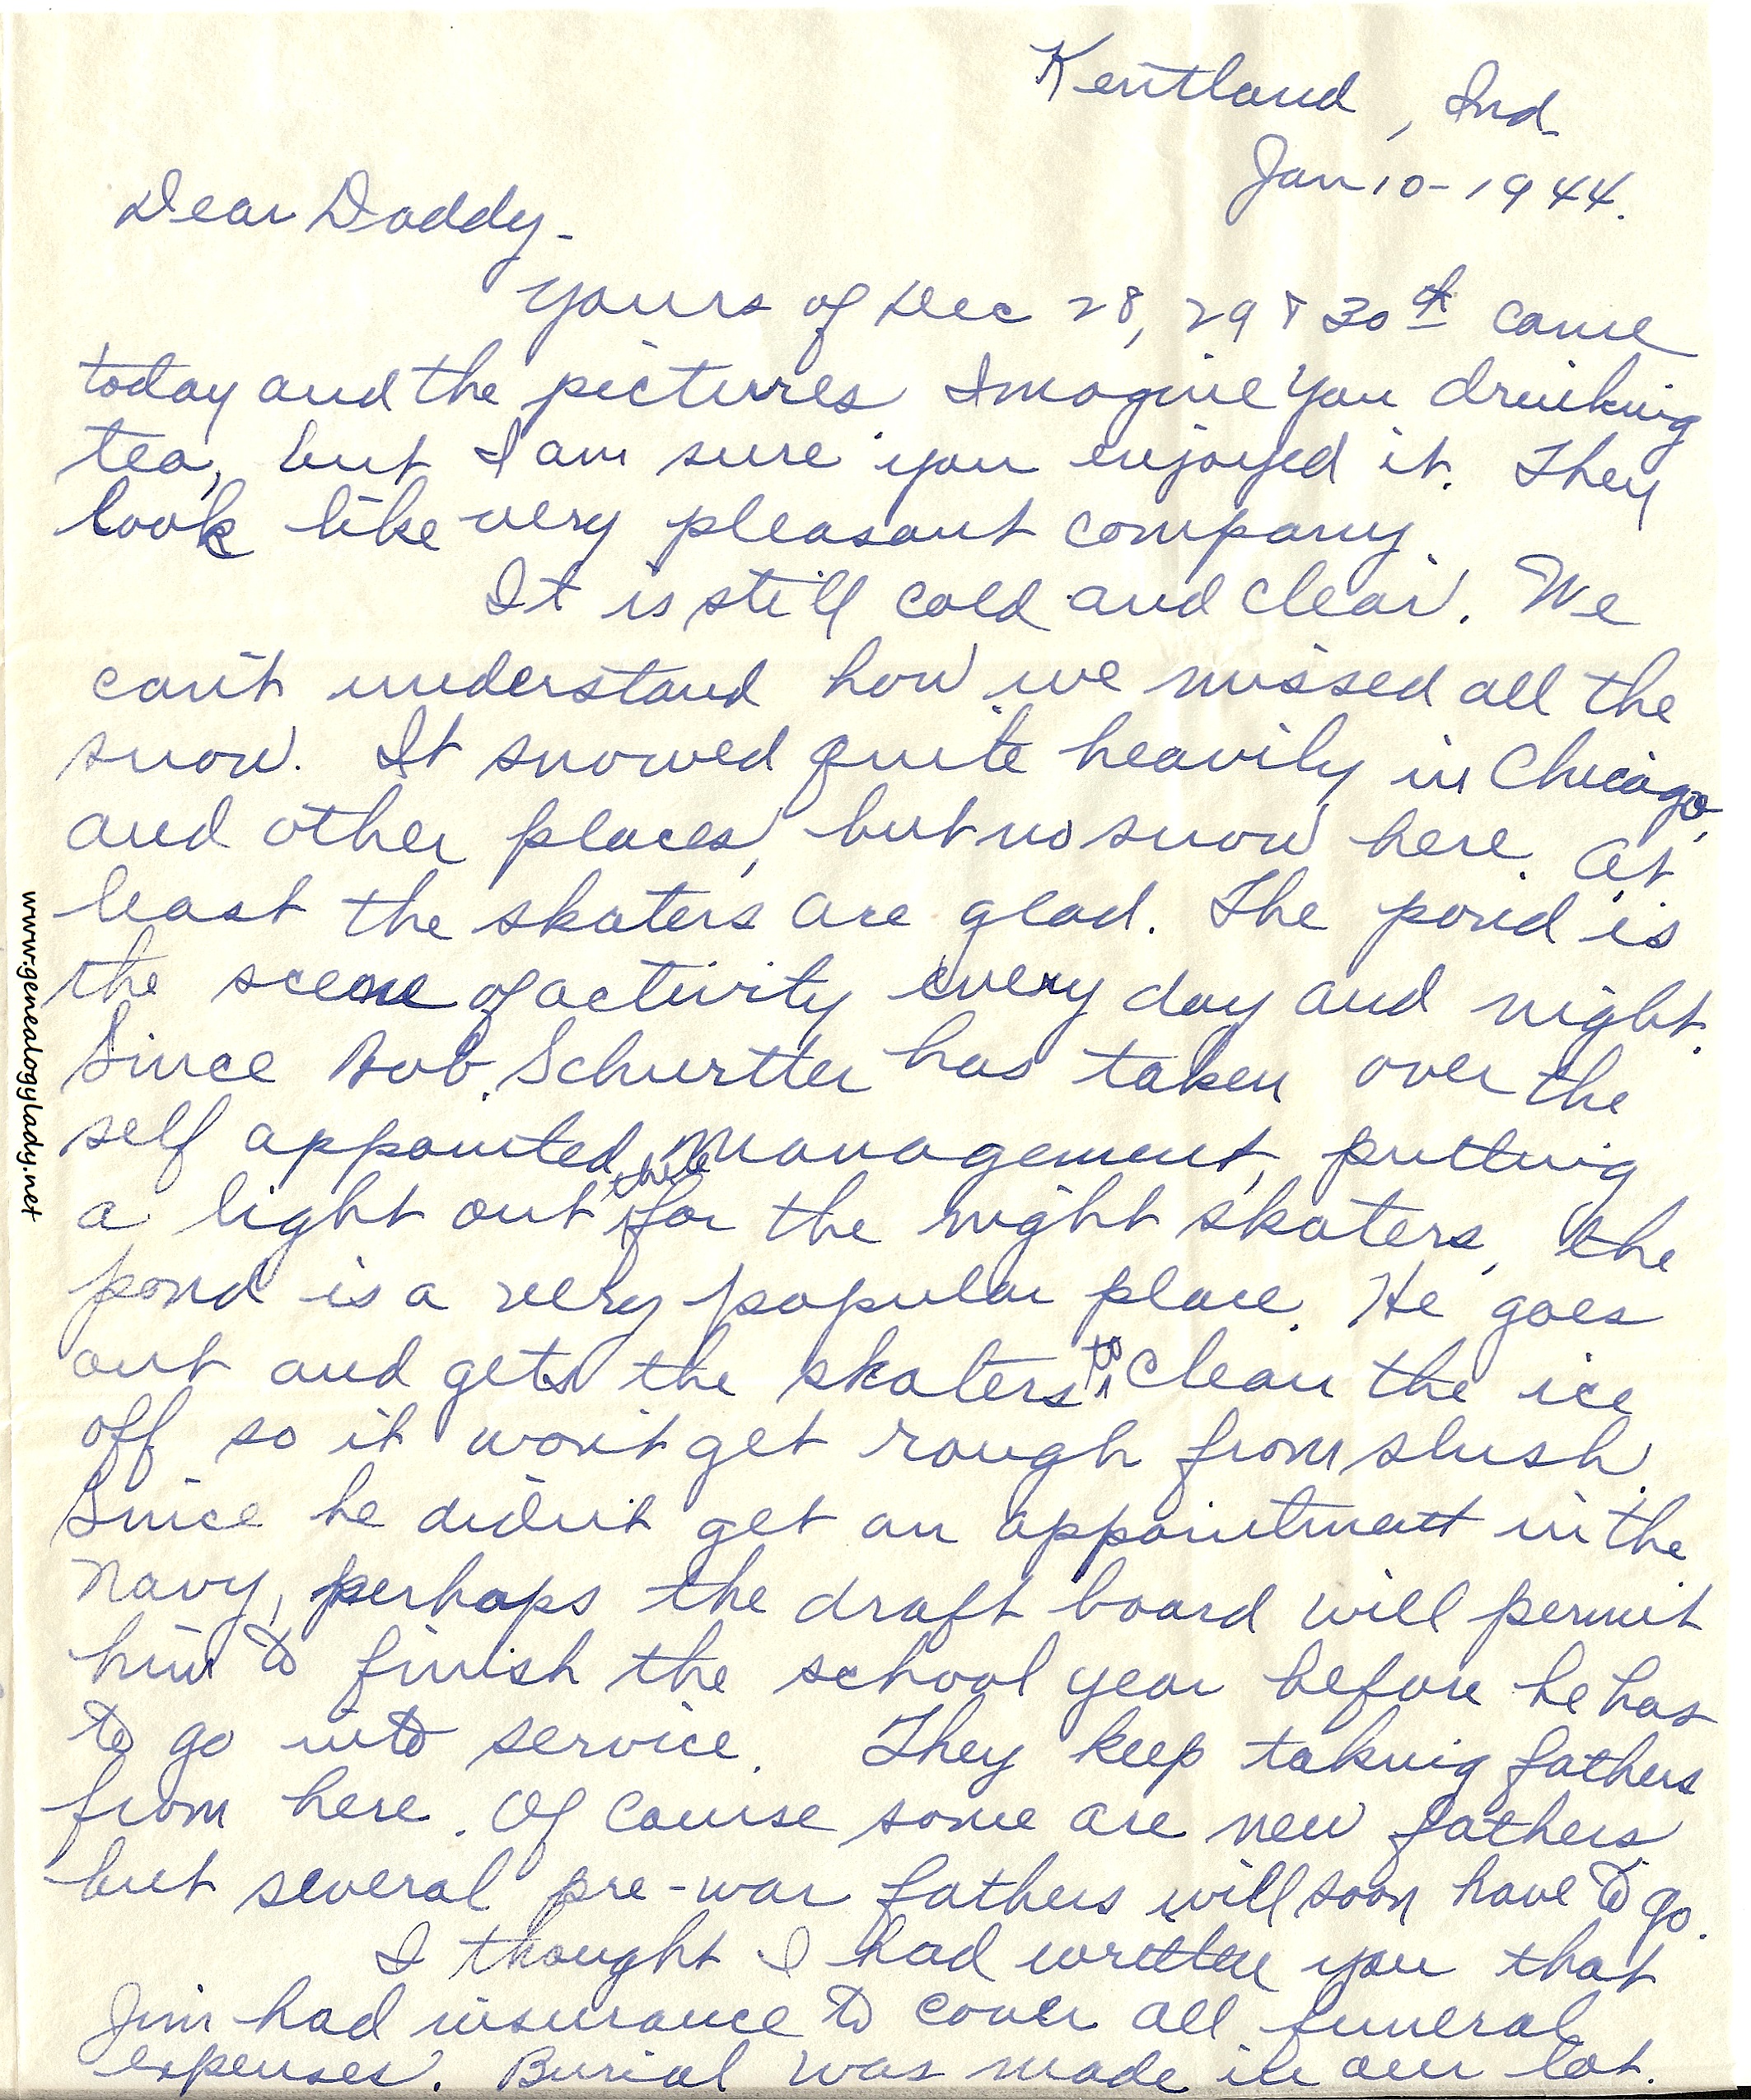 Kentland, Ind.
Jan 10-1944.
Dear Daddy-
Yours of Dec 28, 29 & 30th came
today and the pictures Imagine you drinking
tea, but I am sure you enjoyed it. They
look like very pleasant company.
It is still cold and clear. We
can't understand how we missed all the
snow. It snowed quite heavily in Chicago,
and other places, but no snow here. At
least the skaters are glad. The pond is
the scene of activity every day and night.
Since Bob Schurtter has taken over the
self appointed management, putting
a light out there for the night skaters, the
pond is a very popular place. He goes
out and gets the skaters to clean the ice
off so it won't get rough from slush.
Since he didn't get an appointment in the
Navy, perhaps the draft board will permit
him to finish the school year before he has
to go into service. They keep taking fathers
from here. Of course some are new fathers
but several pre-war fathers will soon have to go.
I thought I had written you that
Jim had insurance to cover all funeral
expenses. Burial was made in our lot.
www.genealogylady.net